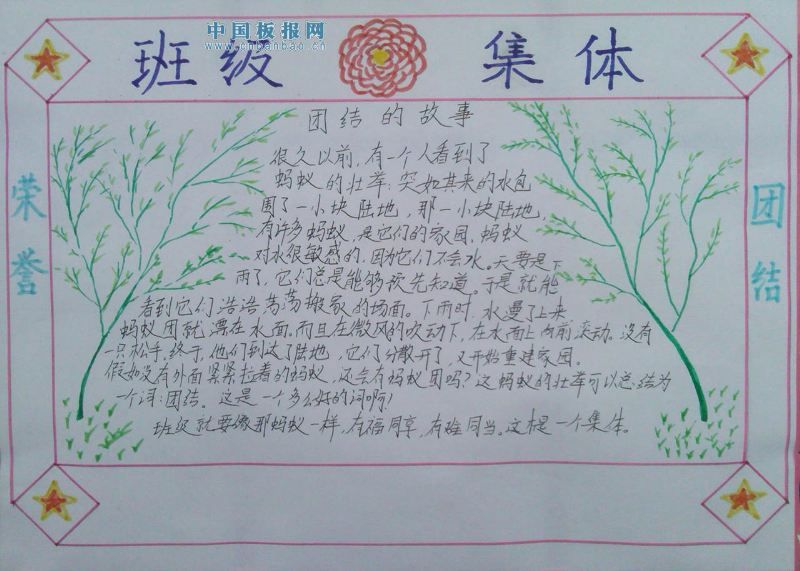 中国板报网
www.cnbanbao.cn
班级 集体
荣誉
团结
团结的故事
很久以前,有一个人看到了
蚂蚁的壮举:突如其来的水包
围了一小块陆地,那一小块陆地,
有许多蚂蚁,是它们的家园,蚂蚁
对水很敏感的,因为它们不会水。天要是下
雨了,它们总是能够预先知道。于是就能
看到它们浩浩荡荡搬家的场面。下雨时,水漫了上来,
蚂蚁团就漂在水面。而且在微风的吹动下,在水面上向前滚动。没有
一只松手,终于,他们到达了陆地,它们分散开了,又开始重建家园。
假如没有外面紧紧拉着的蚂蚁,还会有蚂蚁团吗?这蚂蚁的壮举可以总结为
一个词:团结。这是一个多么好的词啊!
班级就要像那蚂蚁一样,有福同享,有难同当。这才是一个集体。